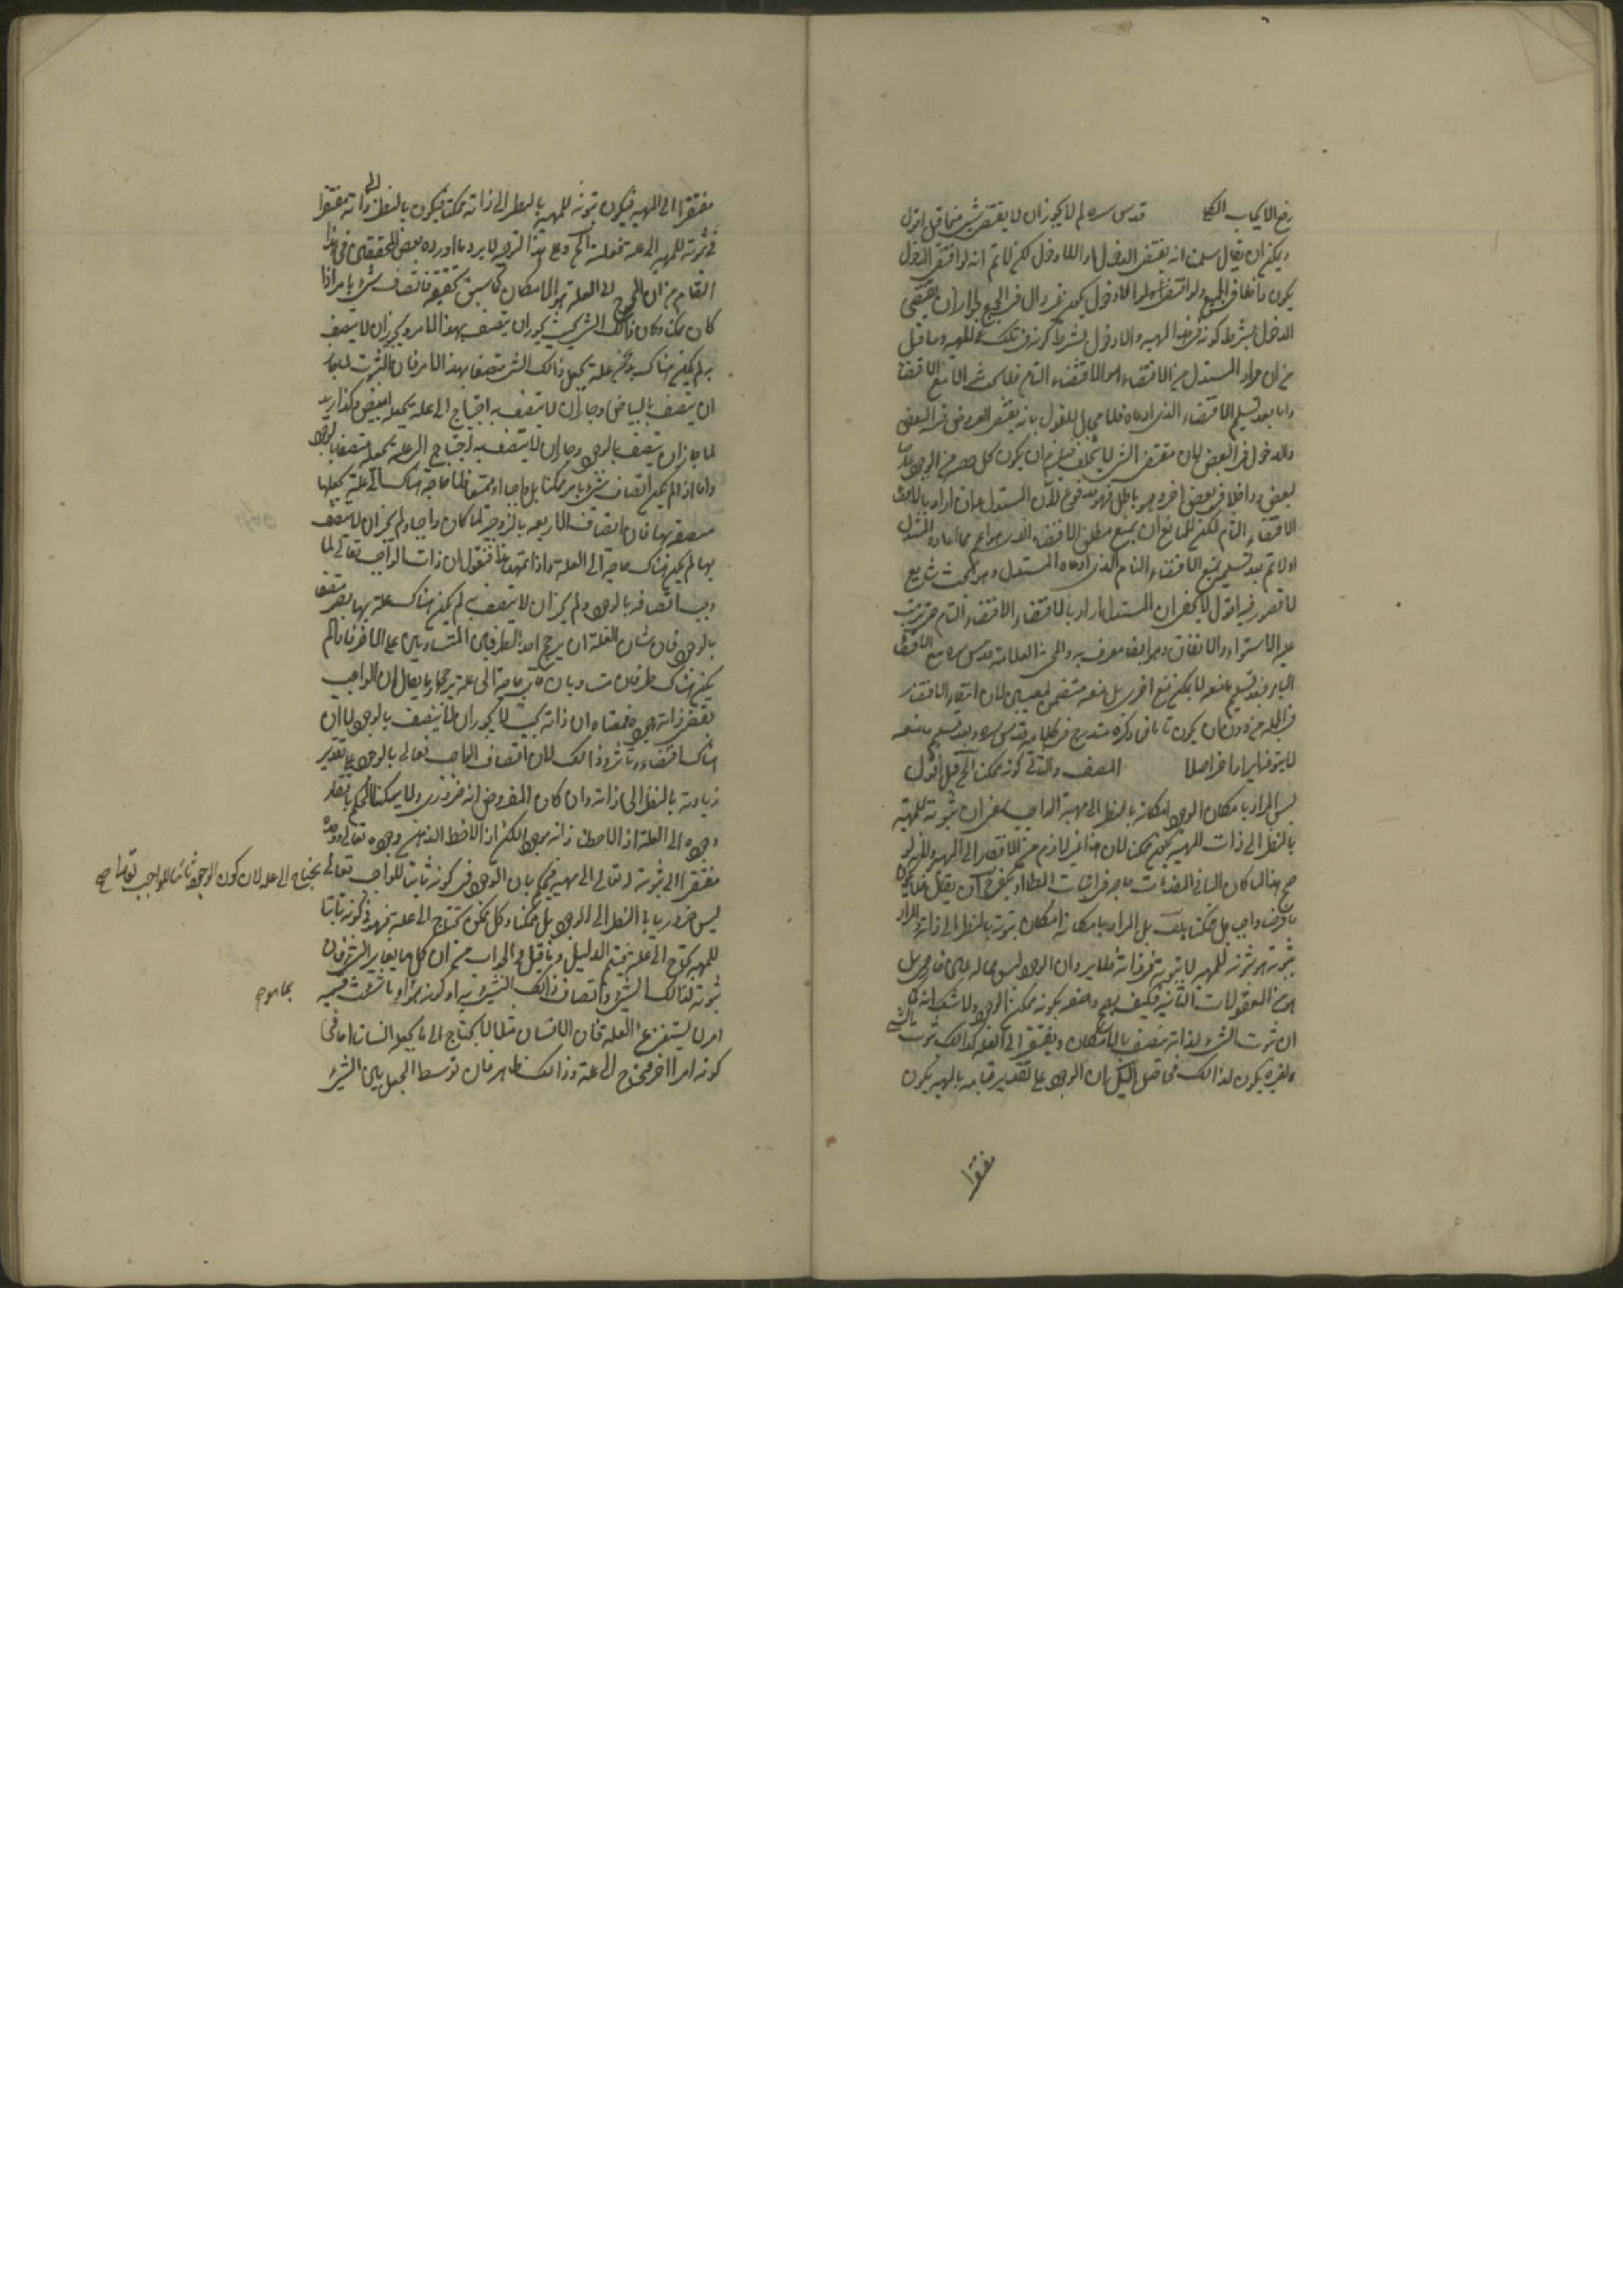 رفع الايجاب الكلى قدس سره لم لا يجوز ان لا يقتضى شيئا منهما قيل اقول
ويمكن ان يقال سلمنا انه يقتضى الدخول او اللادخول لكن لا تم انه لو اقتضى الدخول
يكون داخلا فى الجميع ولو اقتضى اللادخول يكون غير داخل فى الجميع لجواز ان يقتضى
الدخول بشرط كونه فى هذه المهية واللادخول بشرط كونه فى تلك المهية وما قيل
من ان مراد المستدل من الاقتضاء هو الاقتضاء التام فلا
واما بعد تسليم الاقتضاء الذى ادعاه فلا مجال للقول بانه يقتضى العروض فى البعض
والدخول فى البعض لان مقتضى الشئ لا يتخلف فيلزم ان يكون كل حصة من الوجود
لبعض وداخلا فى بعض اخر وهو باطل فهو مدفوع لان المستدل وان اراد بالاقتضاء
الاقتضاء التام لكن للمانع ان يمنع مطلق الاقتضاء الذى هو اعم مما اعاده المستدل
اولا ثم بعد تسليمه يمنع الاقتضاء التام الذى ادعاه المستدل وهو بحث شايع
لا قصور فيه اقول لا يخفى ان المستدل اراد بالاقتضاء الاقتضاء التام
عليه الاستواء والاتفاق وهو ايضا معرف به والمحشى العلامة قدس سره منع الاقتضاء
التام فبعد تسليم ما منعه لا يمكن منع اخر بل منعه متضمن لمعنيين لان انتفاء الاقتضاء
فى الجملة
لا يتوقف ايراد اخر اصلا المصنف والتالى كونه ممكنا الخ قيل اقول
ليس المراد بامكان الوجود امكانه بالنظر الى مهية الواجب بمعنى ان ثبوته للمهية
بالنظر الى ذات المهية يكون ممكنا لان هذا غير لازم من الافتقار الى المهية
صح هذا لما كان لساير المقدمات حاجة فى اثبات المط
ما فرض واجبا بل ممكنا بل المراد بامكانه امكان ثبوته بالنظر الى ذاته والمراد
بثبوته هو ثبوته للمهية لا ثبوته فى ذاته فلا يرد ان الوجود ليس مما له
هو من المعقولات الثانية فكيف يصح وصفه بكونه ممكن الوجود ولا شك انه كما
ان ثبوت الشئ لذاته متصف بالامكان ويفتقر الى العلة كذلك ثبوت الشئ
لغيره يكون كذلك فحاصل الدليل ان الوجود على تقدير قيامه بالمهية يكون
مفتقرا
مفتقرا الى المهية فيكون ثبوته للمهية بالنظر الى ذاته ممكنا فيكون بالنظر الى ذاته مفتقرا
فى ثبوته للمهية الى علة فعلته الخ وعلى هذا التوجيه لا يرد ما اورده بعض المحققين فى هذا
المقام من ان المحوج الى العلة هو الامكان كما سبق تحقيقه فاتصاف شئ بامر اذا
كان ممكنا وكان ذلك الشئ بحيث يجوز ان يتصف بهذا الامر ويجوز ان لا يتصف
به لم يكن هناك بد من علة تجعل ذلك الشئ متصفا بهذا الامر فان الثوب لما جاز
ان يتصف بالبياض وجاز ان لا يتصف به احتاج الى علة تجعله ابيض وكذا زيد
لما جاز ان يتصف بالوجود وجاز ان لا يتصف به احتاج الى علة تجعله متصفا بالوجود
واما اذا لم يكن اتصاف شئ بامر ممكنا بل واجبا او ممتنعا فلا حاجة هناك الى علة تجعلها
متصفة بها فان اتصاف الاربعة بالزوجية لما كان واجبا ولم يجز ان لا يتصف
بها لم يكن هناك حاجة الى العلة واذا تمهد هذا فنقول ان ذات الواجب تعالى لما
وجب اتصافه بالوجود ولم يجز ان لا يتصف به لم يكن هناك علة بها يصير متصفا
بالوجود فان شان العلة ان يرجح احد الطرفين المتساويين على الاخر فاذا لم
يكن هناك طرفان متساويان فاى حاجة الى علة يرجحه وما يقال ان الواجب
يقتضى ذاته وجوده فمعناه ان ذاته بحيث لا يجوز ان لا يتصف بالوجود لا ان
هناك اقتضاء وتاثير وذلك لان اتصاف الواجب تعالى بالوجود على تقدير
زيادته بالنظر الى ذاته وان كان المفروض انه ضرورى ولا يمكننا الحكم بافتقار
وجوده الى العلة اذا لاحظنا ذاته بوجوده لكن اذا لاحظ الذهن وجوده تعالى وجده
مفتقرا الى ثبوته له تعالى الى مهية فيحكم بان الوجود فى كونه ثابتا للواجب تعالى
يحتاج الى علة لان كون الوجود ثابتا للواجب تعالى صح
ليس ضروريا بالنظر الى الوجود بل ممكنا وكل ممكن يحتاج الى علة فهو فى كونه ثابتا
للمهية يحتاج الى علة فيتم الدليل وما قيل فى الجواب من ان كل ما يغاير الشئ فان
ثبوته لذلك الشئ واتصاف ذلك الشئ به او كونه هو او ما شئت فسمه
بما هو صح
امر لا يستغنى عن العلة فان الانسان مثلا لا يحتاج الى ما يجعله انسانا اما فى
كونه امرا اخر فمحتاج الى علة وذلك ظاهر فان توسط الجعل بين الشئ